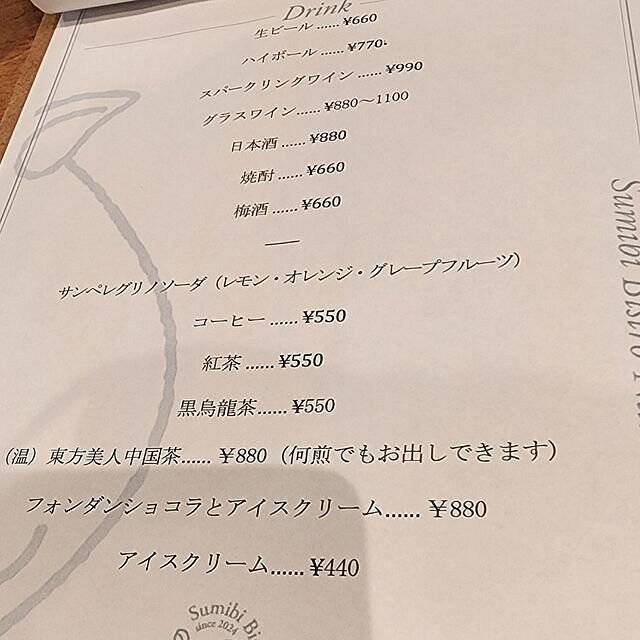 Drink
生ビール ...... ¥660
ハイボール ...... ¥770.
スパークリングワイン ...... ¥990
グラスワイン...... ¥880〜1100
日本酒 ...... ¥880
焼酎 ...... ¥660
梅酒 ...... ¥660
サンペレグリノソーダ（レモン・オレンジ・グレープフルーツ）
コーヒー ...... ¥550
紅茶 ...... ¥550
黒烏龍茶...... ¥550
（温）東方美人中国茶...... ￥880（何煎でもお出しできます）
フォンダンショコラとアイスクリーム...... ￥880
アイスクリーム...... ¥440
Sumibi Bistro
Sumibi Bi
since 2024